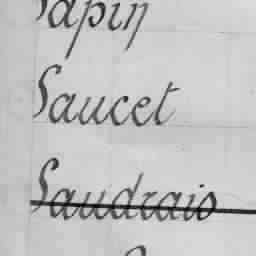 Sapin
Saucet
Saudrais